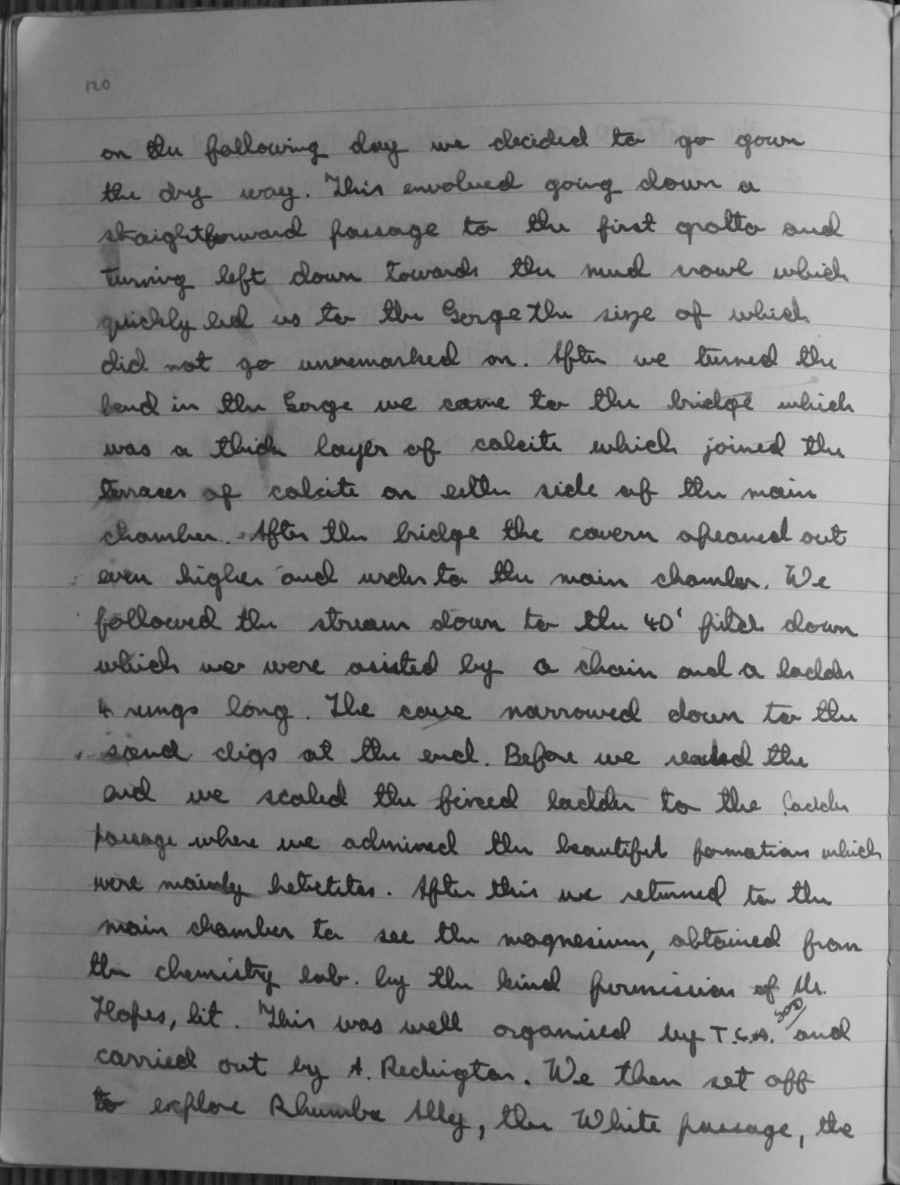 120
on the following day we decided to go gown
the dry way. This envolved going down a
straightforward passage to the first grotto and
turning left down towards the mud crawl which
quickly led us to the Gorge the size of which
did not go unremarked on. After we turned the
bend in the Gorge we came to the bridge which
was a thick layer of calcite which joined the
terraces of calcite on eithe side of the main
chamber. After the bridge the cavern opeaned out
even higher and wider to the main chamber. We
followed the stream down to the 40' pitch down
which we were asisted by a chain and a ladder
4 rungs long. The cave narrowed down to the
sand digs at the end. Before we reached the
end we scaled the fixed ladder to the ladder
passage where we admired the beautiful formations which
were mainly helictites. After this we returned to the
main chamber to see the magnesium, obtained from
the chemistry lab. by the kind permission of Mr.
Hofes, lit. This was well organised by T.C.A. and
carried out by A. Redington. We then set off
to explore Rhumba Ally, the White passage, the